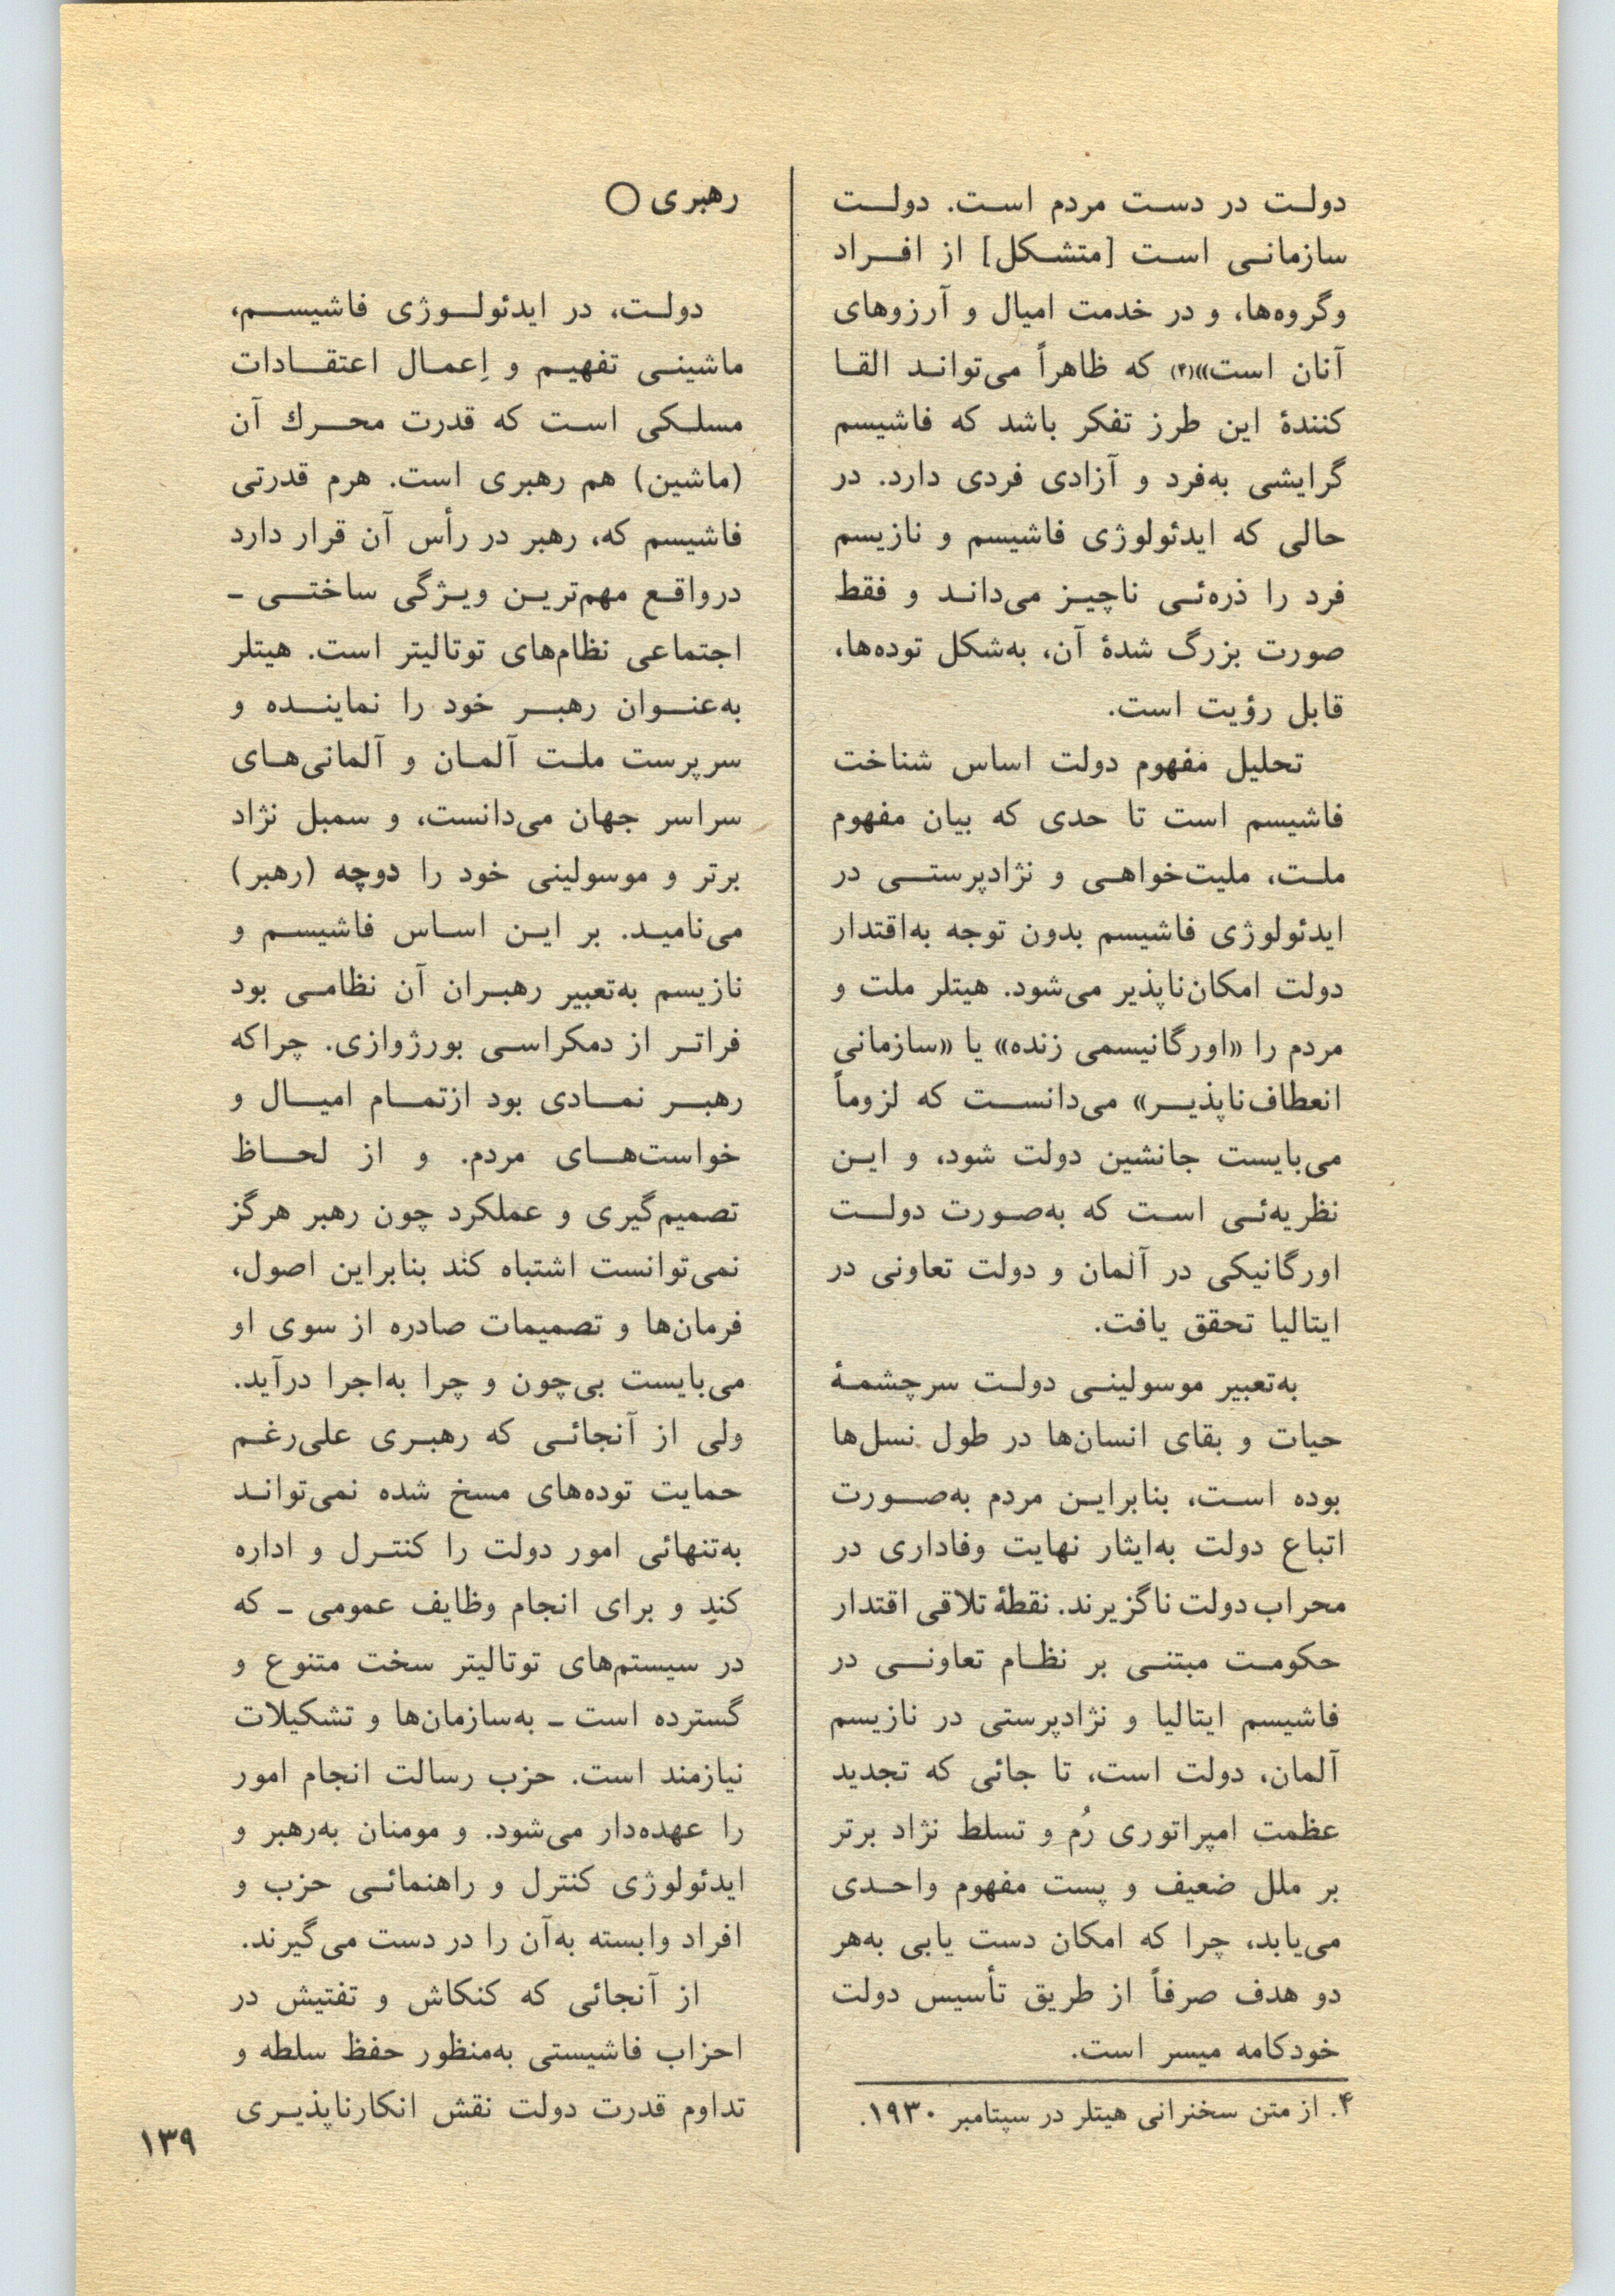 دولت در دست مردم است. دولت
سازمانی است [متشکل] از افراد
وگروه‌ها، و در خدمت امیال و آرزوهای
آنان است»(۴) که ظاهراً می‌تواند القا
کنندهٔ این طرز تفکر باشد که فاشیسم
گرایشی به‌فرد و آزادی فردی دارد. در
حالی که ایدئولوژی فاشیسم و نازیسم
فرد را ذره‌ئی ناچیز می‌داند و فقط
صورت بزرگ شدهٔ آن، به‌شکل توده‌ها،
قابل رؤیت است.
تحلیل مفهوم دولت اساس شناخت
فاشیسم است تا حدی که بیان مفهوم
ملت، ملیت‌خواهی و نژادپرستی در
ایدئولوژی فاشیسم بدون توجه به‌اقتدار
دولت امکان‌ناپذیر می‌شود. هیتلر ملت و
مردم را «اورگانیسمی زنده» یا «سازمانی
انعطاف‌ناپذیر» می‌دانست که لزوماً
می‌بایست جانشین دولت شود، و این
نظریه‌ئی است که به‌صورت دولت
اورگانیکی در آلمان و دولت تعاونی در
ایتالیا تحقق یافت.
به‌تعبیر موسولینی دولت سرچشمهٔ
حیات و بقای انسان‌ها در طول نسل‌ها
بوده است، بنابراین مردم به‌صورت
اتباع دولت به‌ایثار نهایت وفاداری در
محراب دولت ناگزیرند. نقطهٔ تلاقی اقتدار
حکومت مبتنی بر نظام تعاونی در
فاشیسم ایتالیا و نژادپرستی در نازیسم
آلمان، دولت است، تا جائی که تجدید
عظمت امپراتوری رُم و تسلط نژاد برتر
بر ملل ضعیف و پست مفهوم واحدی
می‌یابد، چرا که امکان دست یابی به‌هر
دو هدف صرفاً از طریق تأسیس دولت
خودکامه میسر است.
۴. از متن سخنرانی هیتلر در سپتامبر ۱۹۳۰.
رهبری ○
دولت، در ایدئولوژی فاشیسم،
ماشینی تفهیم و اِعمال اعتقادات
مسلکی است که قدرت محرك آن
(ماشین) هم رهبری است. هرم قدرتی
فاشیسم که، رهبر در رأس آن قرار دارد
درواقع مهم‌ترین ویژگی ساختی ـ
اجتماعی نظام‌های توتالیتر است. هیتلر
به‌عنوان رهبر خود را نماینده و
سرپرست ملت آلمان و آلمانی‌های
سراسر جهان می‌دانست، و سمبل نژاد
برتر و موسولینی خود را دوچه (رهبر)
می‌نامید. بر این اساس فاشیسم و
نازیسم به‌تعبیر رهبران آن نظامی بود
فراتر از دمکراسی بورژوازی. چراکه
رهبر نمادی بود ازتمام امیال و
خواست‌های مردم. و از لحاظ
تصمیم‌گیری و عملکرد چون رهبر هرگز
نمی‌توانست اشتباه کند بنابراین اصول،
فرمان‌ها و تصمیمات صادره از سوی او
می‌بایست بی‌چون و چرا به‌اجرا درآید.
ولی از آنجائی که رهبری علی‌رغم
حمایت توده‌های مسخ شده نمی‌تواند
به‌تنهائی امور دولت را کنترل و اداره
کند و برای انجام وظایف عمومی ـ که
در سیستم‌های توتالیتر سخت متنوع و
گسترده است ـ به‌سازمان‌ها و تشکیلات
نیازمند است. حزب رسالت انجام امور
را عهده‌دار می‌شود. و مومنان به‌رهبر و
ایدئولوژی کنترل و راهنمائی حزب و
افراد وابسته به‌آن را در دست می‌گیرند.
از آنجائی که کنکاش و تفتیش در
احزاب فاشیستی به‌منظور حفظ سلطه و
تداوم قدرت دولت نقش انکارناپذیری
۱۳۹